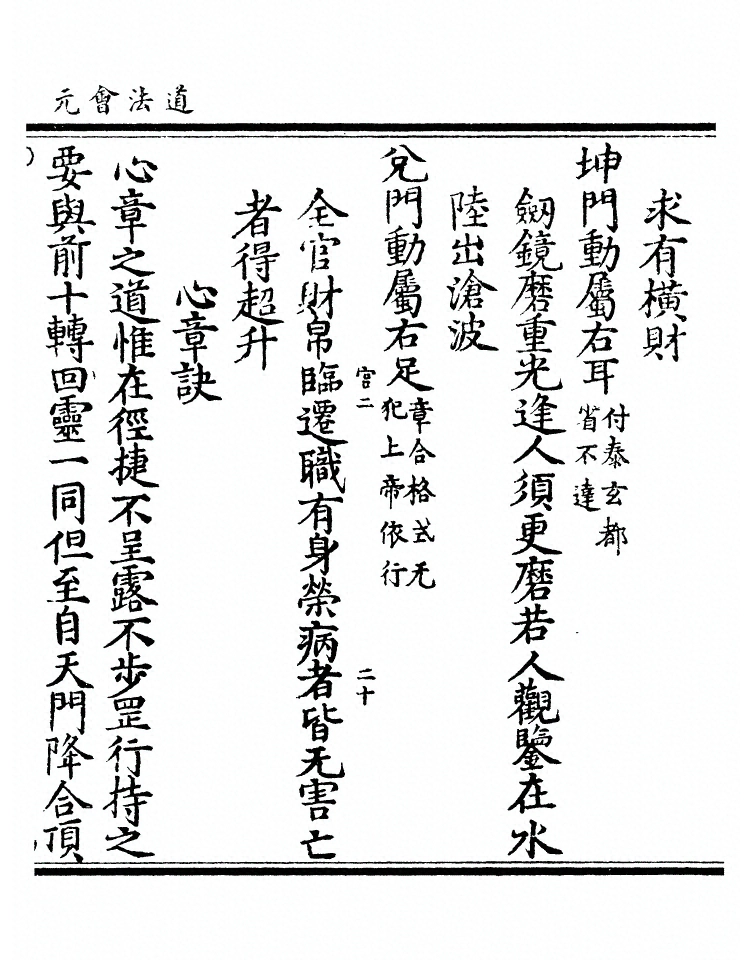 道法會元
求有橫財
坤門動屬右耳付泰玄都省不達
劒鏡磨重光逢人須更磨若人觀鑒在水
陸出滄波
兌門動屬右足章合格式无犯上帝依行
宫二
二十
全官財帛臨遷職有身榮病者皆无害亡
者得超升
心章訣
心章之道惟在徑捷不呈露不步罡行持之
要與前十轉回靈一同但至自天門降合頂